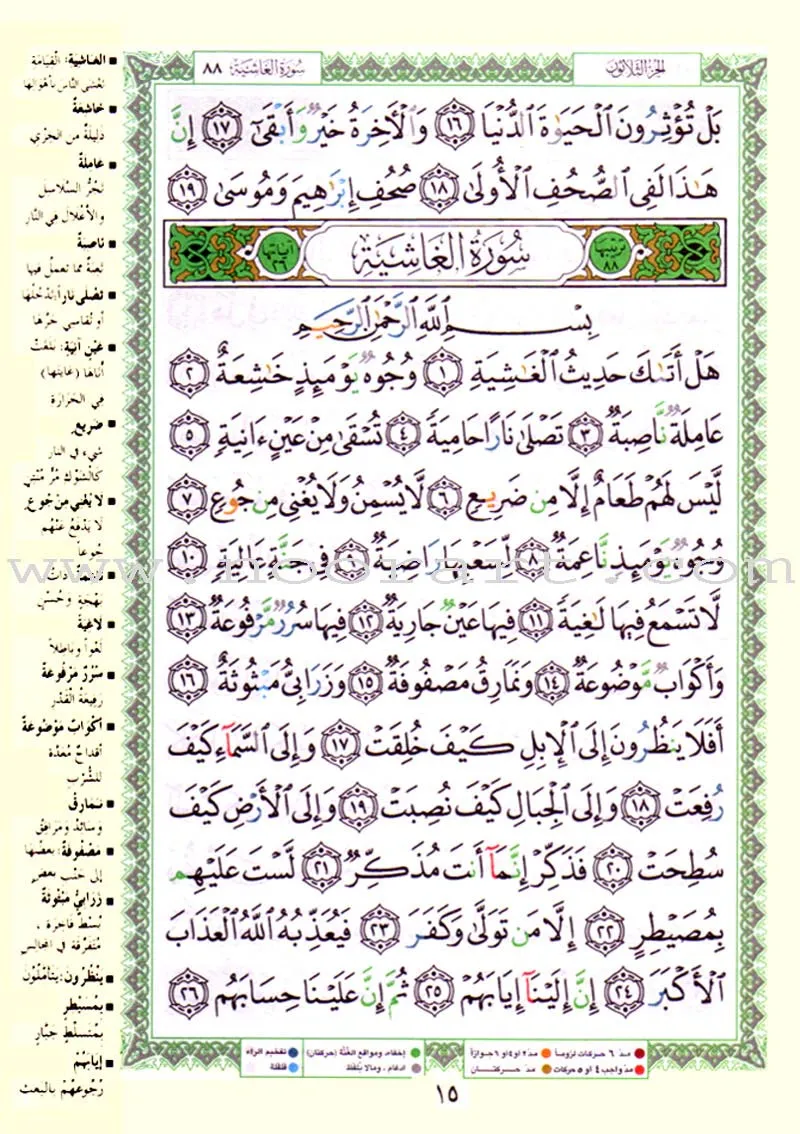 سورة الغاشية ٨٨
الجزء الثلاثون
بَلْ تُؤْثِرُونَ ٱلْحَيَوٰةَ ٱلدُّنْيَا ١٦ وَٱلْأَخِرَةُ خَيْرٌ وَأَبْقَىٰٓ ١٧ إِنَّ
هَـٰذَا لَفِى ٱلصُّحُفِ ٱلْأُولَىٰ ١٨ صُحُفِ إِبْرَٰهِيمَ وَمُوسَىٰ ١٩
ترتيبها ٨٨ سُورَةُ الغَاشِيَةِ آياتها ٢٦
بِسْمِ ٱللَّهِ ٱلرَّحْمَـٰنِ ٱلرَّحِيمِ
هَلْ أَتَىٰكَ حَدِيثُ ٱلْغَـٰشِيَةِ ١ وُجُوهٌ يَوْمَئِذٍ خَـٰشِعَةٌ ٢
عَامِلَةٌ نَّاصِبَةٌ ٣ تَصْلَىٰ نَارًا حَامِيَةً ٤ تُسْقَىٰ مِنْ عَيْنٍ ءَانِيَةٍ ٥
لَّيْسَ لَهُمْ طَعَامٌ إِلَّا مِن ضَرِيعٍ ٦ لَّا يُسْمِنُ وَلَا يُغْنِى مِن جُوعٍ ٧
وُجُوهٌ يَوْمَئِذٍ نَّاعِمَةٌ ٨ لِّسَعْيِهَا رَاضِيَةٌ ٩ فِى جَنَّةٍ عَالِيَةٍ ١٠
لَّا تَسْمَعُ فِيهَا لَـٰغِيَةً ١١ فِيهَا عَيْنٌ جَارِيَةٌ ١٢ فِيهَا سُرُرٌ مَّرْفُوعَةٌ ١٣
وَأَكْوَابٌ مَّوْضُوعَةٌ ١٤ وَنَمَارِقُ مَصْفُوفَةٌ ١٥ وَزَرَابِىُّ مَبْثُوثَةٌ ١٦
أَفَلَا يَنظُرُونَ إِلَى ٱلْإِبِلِ كَيْفَ خُلِقَتْ ١٧ وَإِلَى ٱلسَّمَآءِ كَيْفَ
رُفِعَتْ ١٨ وَإِلَى ٱلْجِبَالِ كَيْفَ نُصِبَتْ ١٩ وَإِلَى ٱلْأَرْضِ كَيْفَ
سُطِحَتْ ٢٠ فَذَكِّرْ إِنَّمَآ أَنتَ مُذَكِّرٌ ٢١ لَّسْتَ عَلَيْهِم
بِمُصَيْطِرٍ ٢٢ إِلَّا مَن تَوَلَّىٰ وَكَفَرَ ٢٣ فَيُعَذِّبُهُ ٱللَّهُ ٱلْعَذَابَ
ٱلْأَكْبَرَ ٢٤ إِنَّ إِلَيْنَآ إِيَابَهُمْ ٢٥ ثُمَّ إِنَّ عَلَيْنَا حِسَابَهُم ٢٦
الغاشية: القيامة
تغشى الناس بأهوالها
خاشعة
ذليلة من الخزي
عاملة
تجر السلاسل
والأغلال في النار
ناصبة
تعبة مما تعمل فيها
تصلى نارا: تدخلها
أو تقاسي حرها
عين آنية: بلغت
أناها (غايتها)
في الحرارة
ضريع
شيء في النار
كالشوك مر منتن
لا يغني من جوع
لا يدفع عنهم
جوعا
ذات
بهجة وحسن
لاغية
لغوا وباطلا
سرر مرفوعة
رفيعة القدر
أكواب موضوعة
أقداح معدة
للشرب
نمارق
وسائد ومرافق
مصفوفة: بعضها
إلى جنب بعض
زرابي مبثوثة
بسط فاخرة،
متفرقة في المجالس
ينظرون: يتأملون
بمسيطر
بمتسلط جبار
إيابهم
رجوعهم بالبعث
مد ٦ حركات لزوما مد ٢ او ٤ او ٦ جوازا إخفاء، ومواقع الغنة (حركتان) تفخيم الراء
مد واجب ٤ او ٥ حركات مد حركتان ادغام، ومالا يلفظ قلقلة
١٥
www.noorart.com